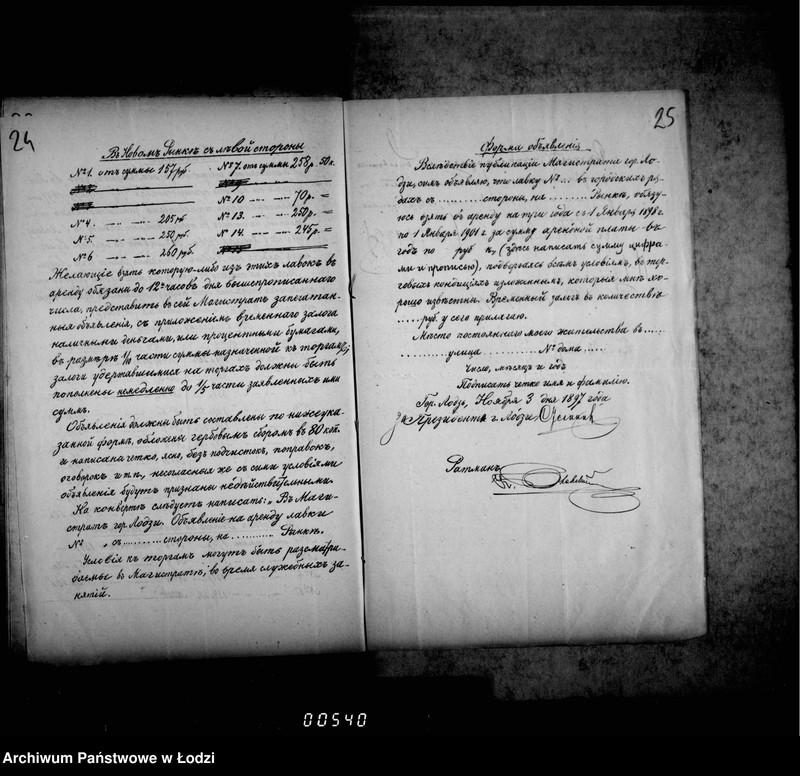 24
Въ Новомъ Рынкѣ съ лѣвой стороны
№ 1. отъ суммы 157 руб.
№ 7. отъ суммы 258 р. 50 к.
№ 10 — — 70 р. =
№ 4. — — 205 руб
№ 13. — — 250 р. =
№ 5. — — 250 руб
№ 14. — — 245 р. =
№ 6 — — 260 руб.
Желающіе взять которую-либо изъ этихъ лавокъ въ
аренду обязаны до 12 часовъ дня вышепрописаннаго
числа, представить въ сей Магистратъ запечатан-
ныя объявленія, съ приложеніемъ временнаго залога
наличными деньгами, или процентными бумагами,
въ размѣрѣ 1/10 части суммы назначенной къ торгамъ;
залоги удержавшимися на торгахъ должны быть
пополнены немедленно до 1/5 части заявленныхъ ими
суммъ.
Объявленія должны быть составлены по нижеука-
занной формѣ, обложены гербовымъ сборомъ въ 80 коп.
и написаны четко, ясно, безъ подчистокъ, поправокъ,
оговорокъ и т.п., несогласныя же съ сими условіями
объявленія будутъ признаны недѣйствительными.
На конвертѣ слѣдуетъ написать: „Въ Маги-
стратъ гор. Лодзи. Объявленіе на аренду лавки
№ „ съ .......... стороны, на .......... Рынкѣ.
Условія къ торгамъ могутъ быть разсматри-
ваемы въ Магистратѣ, во время служебныхъ за-
нятій.
25
Форма объявленія
Вслѣдствіе публикаціи Магистрата гор. Ло-
дзи, симъ объявляю, что лавку №... въ городскихъ ря-
дахъ съ ........ стороны, на ........ Рынкѣ, обязу-
юсь взять въ аренду на три года съ 1 Января 1898 г.
по 1 Января 1901 г. за сумму арендной платы въ
годъ по руб к, (здѣсь написать сумму цифра-
ми и прописью), подвергаясь всѣмъ условіямъ, въ тор-
говыхъ кондиціяхъ изложеннымъ, которыя мнѣ хо-
рошо извѣстны. Временный залогъ въ количествѣ
...... руб. у сего прилагаю.
Мѣсто постояннаго моего жительства въ .....
.......... улица .......... № дома .....
Число, мѣсяцъ и годъ
Подписать четко имя и фамилію.
Гор. Лодзь, Ноября 3 дня 1897 года
За Президента г. Лодзи
Ратманъ
00540
Archiwum Państwowe w Łodzi